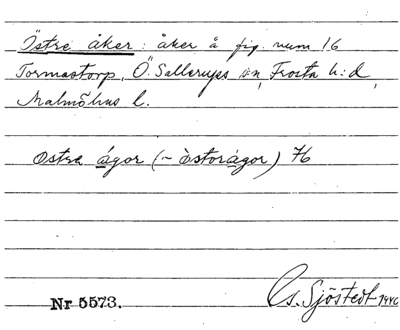 Östre åker: åker å fig. num 16
Tormastorp, Ö. Sallerups sn, Frosta h:d,
Malmöhus l.
Ostre ágor (~ òstorágor) 76
Gs. Sjöstedt 1946
Nr 5573.